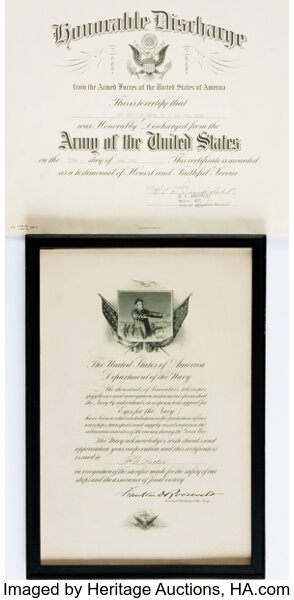 Honorable Discharge
from the Armed Forces of the United States of America
This is to certify that
was Honorably Discharged from the
Army of the United States
on the day of This certificate is awarded
as a testimonial of Honest and Faithful Service
The United States of America
Department of the Navy
The thousands of binoculars, telescopes
spyglasses and navigation instruments furnished
the Navy by individuals in response to its appeal for
Eyes for the Navy
have been a vital contribution to the protection of our
warships, transports and supply vessels against the
submarine activities of the enemy during the Great War.
The Navy acknowledges with thanks and
appreciation your cooperation and this certificate is
issued to
in recognition of the sacrifice made for the safety of our
ships and the assurance of final victory.
Franklin D. Roosevelt
Assistant Secretary of the Navy
Imaged by Heritage Auctions, HA.com